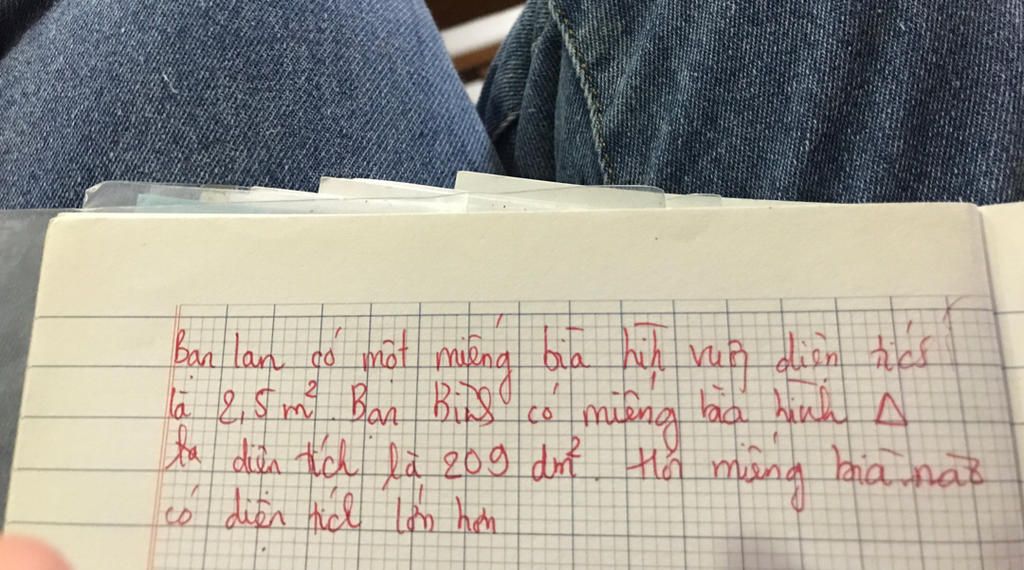 Bạn lan có một miếng bìa hìh vuông diện tích
là 2,5 m². Bạn Bình có miếng bìa hình Δ
ta diện tích là 209 dm². Hỏi miếng bìa nào
có diện tích lớn hơn